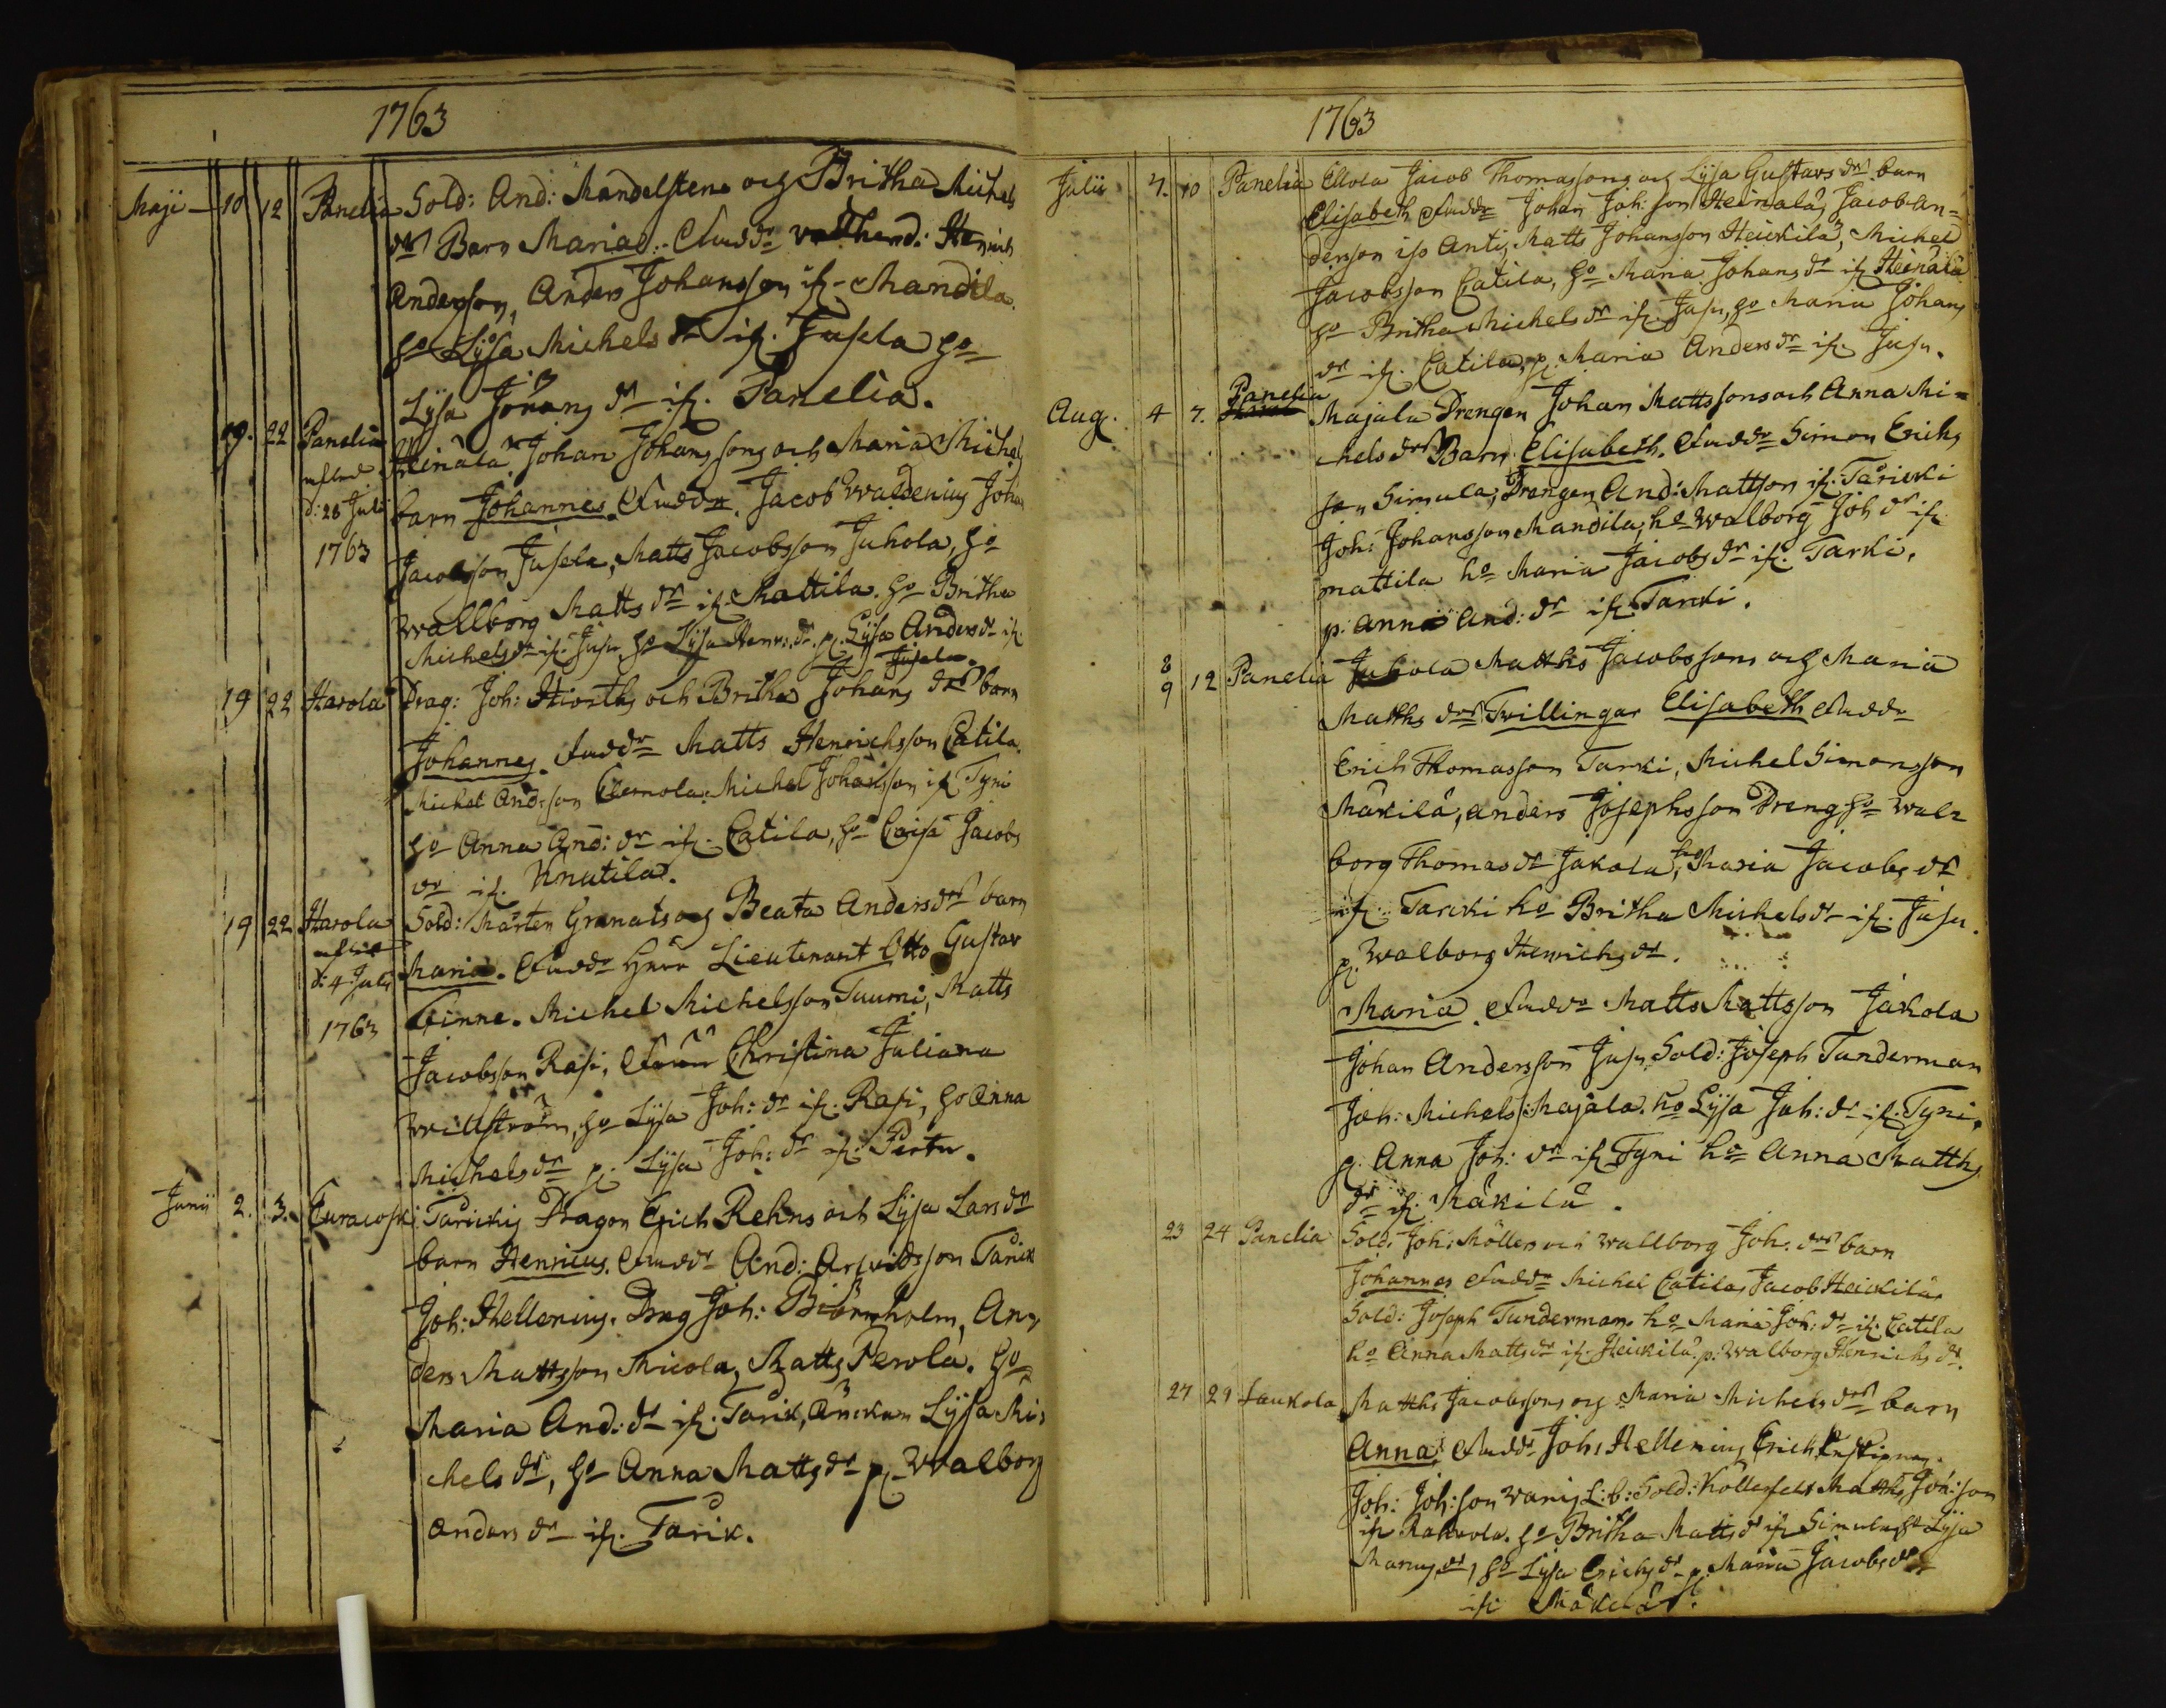 1763
Maji 10 12 Panelia Sold: And: Mandelstens och Britha Michels
dr Barn Maria. Faddr Henrich
Andersson, Anders Johansson ifr. Mandila.
ho Lysa Michels dr ifr. Jusela ho
Lysa Johans dr ifr. Panelia.
19. 22 Panelia Heinälä Johan Johanssons och Maria Michels
d: 28 Juli barn Johannes. Faddr. Jacob Waldenius Johan
1763 Jacobsson Jusela, Matts Jacobsson Juhola, ho
Wallborg Matts dr ifr. Mattila. ho Britha
Michels dr ifr. Jusu, ho Lysa Henrs. dr. p. Lysa Anders dr ifr.
Jusela.
19 22 Harola Drag: Joh: Hiorths och Britha Johans drs barn
Johannes. Faddr Matts Henrichsson Catila.
Michel Anders son Clemola. Michel Johansson ifr Tyni
ho Anna And: dr ifr. Catila, ho Caisa Jacobs
dr ifr. Knutila.
19 22 Harola Sold: Mårten Granats och Beata Anders drs barn
d: 4 July Maria. Faddr Herr Lieutenant Otto Gustav
1763 Finne. Michel Michelsson Tuumi, Matts
Jacobsson Rasi, Christina Juliana
Willström, ho Lysa Joh: dr ifr. Rasi, ho Anna
Michels dr p. Lysa Joh: dr ifr. Pertu.
Junii 2. 3. Euracoski Tarickis Dragon Erich Rehns och Lysa Lars drs
barn Henricus. Faddr And: Arfvidsson Tarick
Joh: Hellenius. Drag Joh: Biörnholm, An-
ders Mattsson Micola, Matts Perola. ho
Maria And: dr ifr. Tarik, Änckan Lysa Mi-
chels dr, ho Anna Matts dr p. Walborg
Anders dr ifr. Tarik.
1763
Julii 7. 10 Panelia Ollola Jacob Thomassons och Lysa Gustavs drs barn
Elisabeth Faddr Johan Joh: son Heinälä, Jacob An-
dersson ifr Anti, Matts Johansson Heickilä, Michel
Jacobsson Catila, ho Maria Johans dr ifr Heinälä
ho Britha Michels dr ifr. Jusu, ho Maria Johans
dr ifr. Catila, p. Maria Anders dr ifr Jusu.
Aug. 4 7. Panelia Majala Drengen Johan Mattssons och Anna Mi-
chels drs Barn Elisabeth. Faddr Simon Erichs
son Simula, Drengen And: Mattson ifr. Taricki
Joh: Johansson Mandila, ho Walborg Joh dr ifr
mattila ho Maria Jacobs dr ifr. Tarki.
p. Anna And: dr ifr Tarki.
8
9 12 Panelia Juhola Matths Jacobssons och Maria
Matths drs Tvillingar Elisabeth Faddr
Erich Thomasson Tarki, Michel Simonsson
Mäkilä, Anders Josephsson Dreng ho Wal-
borg Thomas dr Jakola, ho Maria Jacobs dr
ifr. Tarcki ho Britha Michels dr ifr. Jusu.
p. Walborg Henrichs dr.
Maria. Faddr Matts Mattsson Jakola
Johan Andersson Jusu, Sold: Joseph Tunderman
Joh: Michels s: Majala. ho Lysa Joh: dr ifr. Tyni.
p. Anna Joh: dr ifr Tyni ho Anna Matths
dr ifr. Mäkilä.
23 24 Panelia Sold. Joh: Möllers och Wallborg Joh. drs barn
Johannes Faddr Michel Catila, Jacob Heickilä,
Sold: Joseph Tunderman. ho Maria Joh: dr ifr. Catila
ho Anna Matts dr ifr. Heickilä. p. Walborg Henrichs dr.
27 29 Laukola Matths Jacobssons och Maria Michels drs barn
Anna. Faddr Joh: Hellenius, Erich
Joh: Joh: son Sold: Matths Joh: son
ifr ho Britha Matts dr ifr Simula, ho Lysa
dr, ho Lysa Erichs dr p. Maria Jacobs dr
ifr Mäkelä.